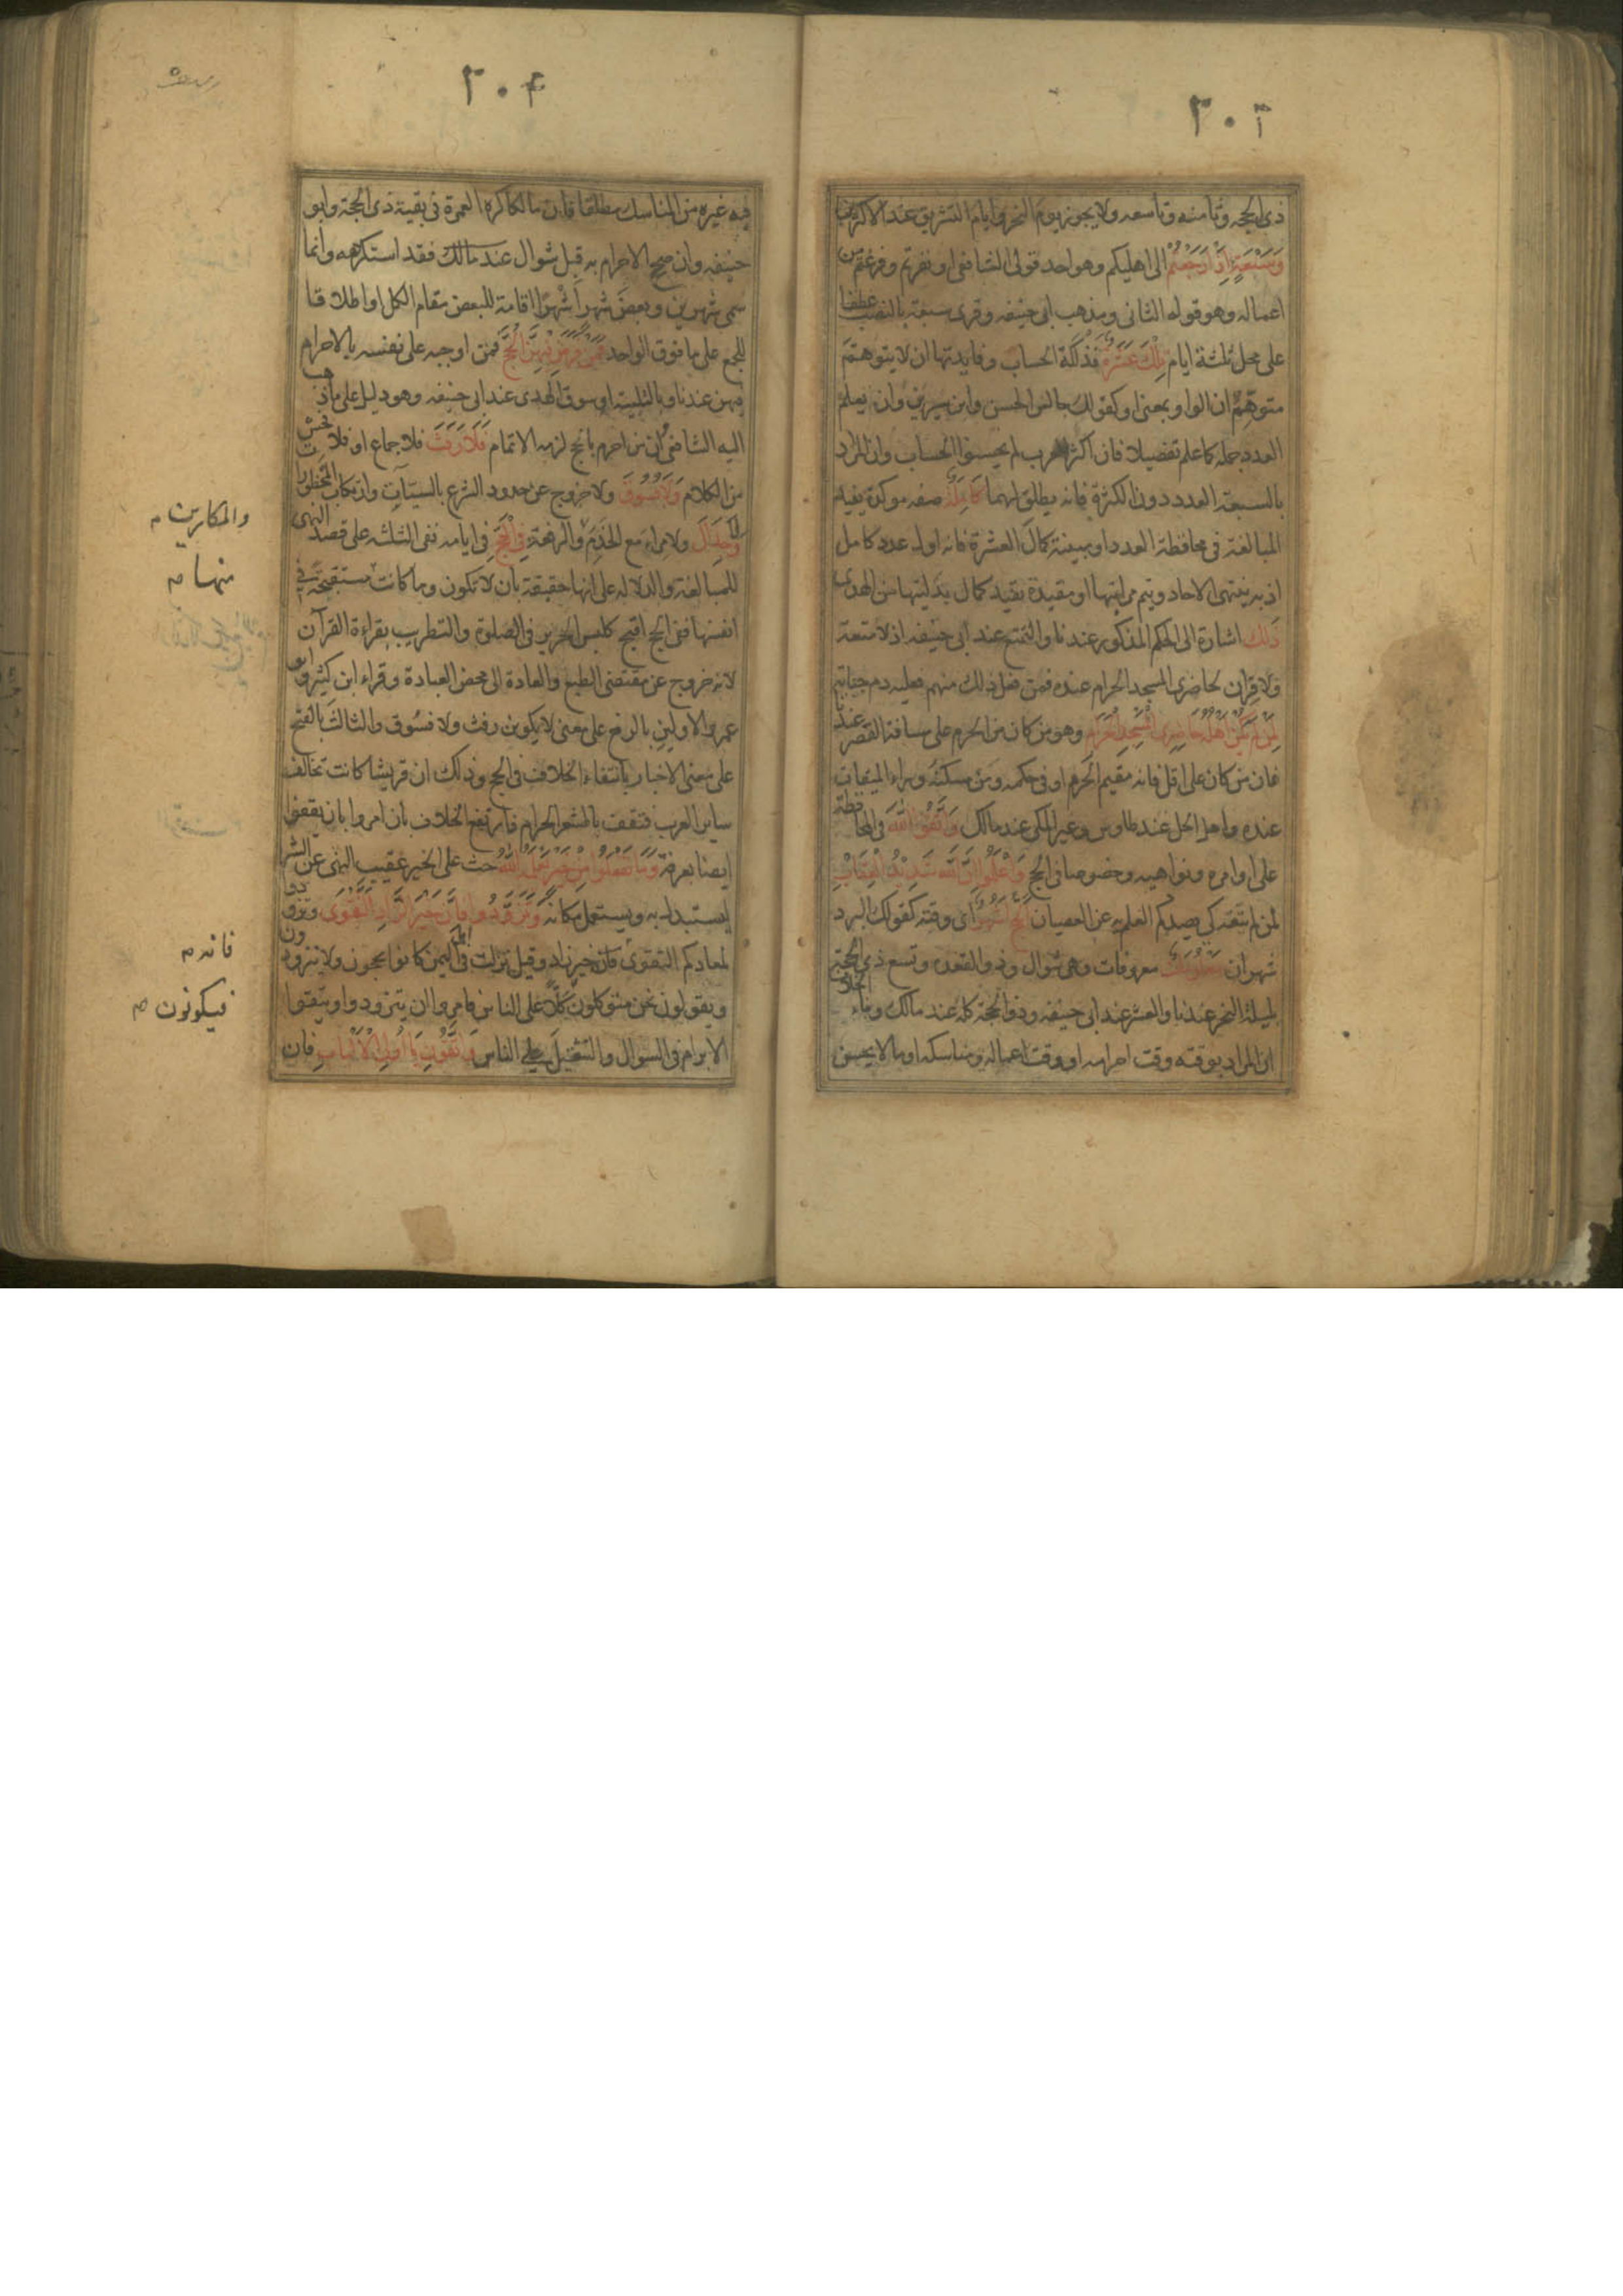 ٣٠٣
ذى الحجه وثامنه وتاسعه ولا يجوز يوم النحر وايام التشريق عند الاكثرين
وَسَبْعَةٍ اِذَا رَجَعْتُمْ الى اهليكم وهو احد قولى الشافعى او نفرتم وفرغتم من
اعماله وهو قوله الثانى ومذهب ابى حنيفه وقرى سبعة بالنصب عطفا
على محل ثلثة ايام تِلْكَ عَشَرَةٌ فذلكة الحساب وفايدتها ان لا يتوهم
متوهم ان الواو بمعنى او كقولك جالس الحسن وابن سيرين وان يعلم
العدد جملة كما علم تفصيلا فان اكثر العرب لم يحسنوا الحساب وان المراد
بالسبعة العدد دون الكثرة فانه يطلق لهما كَامِلَةٌ صفه موكدة يفيد
المبالغة فى محافظة العدد او مبينة كمال العشرة فانه اول عدد كامل
اذ به ينتهى الاحاد ويتم مراتبها او مقيدة تقيد كمال بدليتها من الهدى
ذَلِكَ اشارة الى الحكم المذكور عندنا والتمتع عند ابى حنيفه اذ لا متعة
ولا قران لحاضرى المسجد الحرام عنده فمن فعل ذلك منهم فعليه دم جناية
لِمَنْ لَمْ يَكُنْ اَهْلُهُ حَاضِرِى الْمَسْجِدِ الْحَرَامِ وهو من كان من الحرم على مسافة القصر عندنا
فان من كان على اقل فانه مقيم الحرم او فى حكمه ومن مسكنه وراء الميقات
عنده واهل الحل عند طاوس وغير المكى عند مالك وَاتَّقُوا اللهَ فى المحافظة
على اوامره ونواهيه وخصوصا فى الحج وَاعْلَمُوا اَنَّ اللهَ شَدِيْدُ الْعِقَابِ
لمن لم يتقه كى يصدكم العلم به عن العصيان الحَجُّ اَشْهُرٌ اى وقته كقولك البرد
شهران مَعْلُومَاتٌ معروفات وهى شوال وذو القعده وتسع ذى الحجة
بليلة النحر عندنا والعشر عند ابى حنيفه وذو الحجة كله عند مالك وبناء الخلاف
ان المراد بوقته وقت احرامه او وقت اعماله ومناسكه او ما لا يحسن
٣٠٤
فيه غيره من المناسك مطلقا فان مالكا كره العمرة فى بقية ذى الحجة وابو
حنيفه وان صحح الاحرام به قبل شوال عند مالك فقد استكرهه وانما
سمى شهرين وبعض شهر اشهرا اقامة للبعض مقام الكل او اطلاقا
للجمع على ما فوق الواحد فَمَنْ فَرَضَ فِيهِنَّ الْحَجَّ فمن اوجبه على نفسه بالاحرام
فيهن عندنا وبالتلبية او سوق الهدى عند ابى حنيفه وهو دليل على ما ذهب
اليه الشافعى ان من احرم بالحج لزمه الاتمام فَلَا رَفَثَ فلا جماع او فلا فحش
من الكلام وَلَا فُسُوقَ ولا خروج عن حدود الشرع بالسيئات وارتكاب المحظورات
وَلَا جِدَالَ ولا مراء مع الخدم والرفقة فِى الْحَجِّ فى ايامه نفى الثلثه على قصد النهى
للمبالغة والدلاله على انها حقيقة بان لا تكون وما كانت مستقبحة فى
انفسها ففى الحج اقبح كلبس الحرير فى الصلوة والتطريب بقراءة القرآن
لانه خروج عن مقتضى الطبع والعادة الى محض العبادة وقراء ابن كثير وابو
عمرو الاولين بالرفع على معنى لا يكونن رفث ولا فسوق والثالث بالفتح
على معنى الاخبار بانتفاء الخلاف فى الحج وذلك ان قريشا كانت تخالف
ساير العرب فتقف بالمشعر الحرام فارتفع الخلاف بان امروا بان يقفوا
ايضا بعرفة وَمَا تَفْعَلُوا مِنْ خَيْرٍ يَعْلَمْهُ اللهُ حث على الخير عقيب النهى عن الشر
ليستبدل به ويستعمل مكانه وَتَزَوَّدُوا فَاِنَّ خَيْرَ الزَّادِ التَّقْوَى وتزودوا
لمعادكم التقوى فانه خير زاد وقيل نزلت فى اهل اليمن كانوا يحجون ولا يتزودون
ويقولون نحن متوكلون كلا على الناس فامروا ان يتزودوا ويتقوا
الابرام فى السوال والتثقيل على الناس وَاتَّقُونِ يَا اُولِى الْاَلْبَابِ فان
والمكارين م
منها م
فانه م
فيكونون م